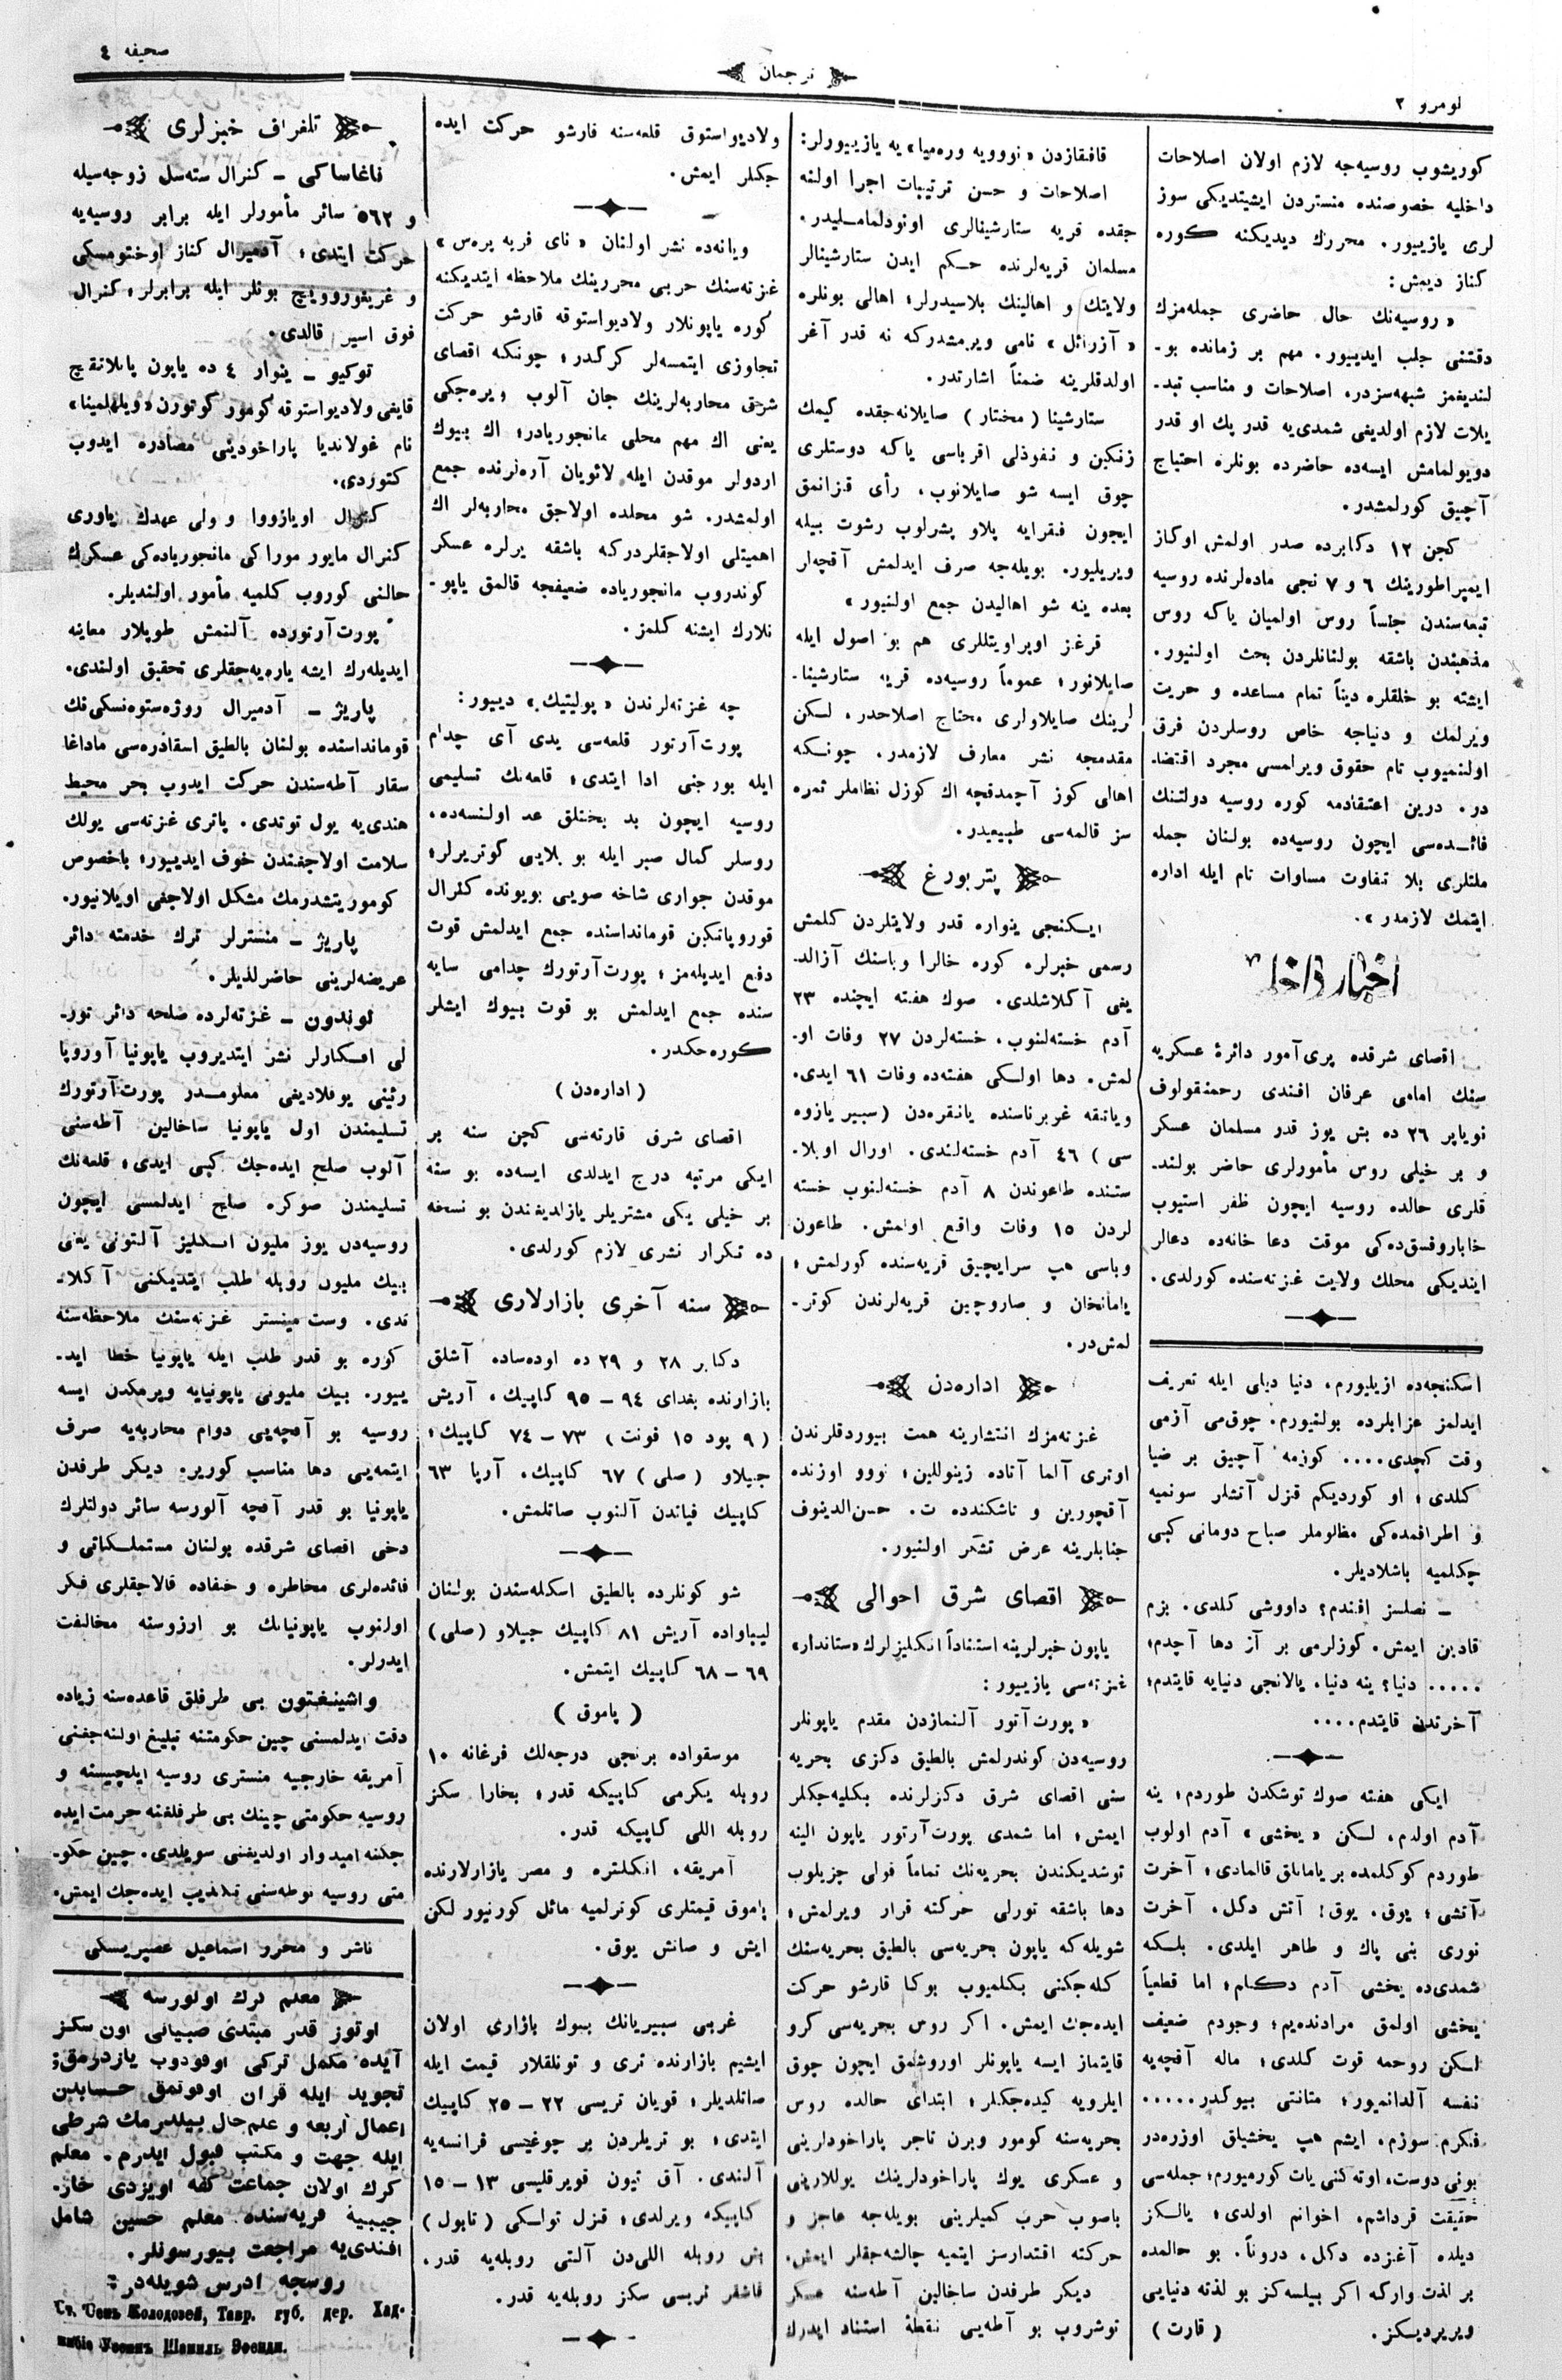 نومرو ٢
ترجمان
صحيفه ٤
كوريشوب روسيه‌جه لازم اولان اصلاحات
داخليه خصوصنده منستردن ايشيتديكى سوز
لرى يازييور. محررك ديديكنه كوره
كناز ديمش:
« روسيه‌نك حال حاضرى جمله‌مزك
دقتنى جلب ايدييور. مهم بر زمانده بو-
لنديغمز شبهه‌سزدر. اصلاحات و مناسب تبد-
يلات لازم اولديغى شمدى‌يه قدر پك او قدر
دويولمامش ايسه‌ده حاضرده بونلره احتياج
آچيق كورلمشدر.
كچن ١٢ دكابرده صدر اولمش اوكاز
ايمپراطورينك ٦ و ٧ نجى ماده‌لرنده روسيه
تبعه‌سندن جنساً روس اولميان ياكه روس
مذهبندن باشقه بولنانلردن بحث اولنيور.
ايشته بو خلقلره ديناً تمام مساعده و حريت
ويرلمك و دنياجه خاص روسلردن فرق
اولنميوب تام حقوق ويرلمسى مجرد اقتضا-
در. درين اعتقادمه كوره روسيه دولتنك
فائده‌سى ايچون روسيه‌ده بولنان جمله
ملتلرى بلا تفاوت مساوات تام ايله اداره
ايتمك لازمدر ».
اخبار داخليه
اقصاى شرقده پرى آمور دائرۀ عسكريه
سنك امامى عرفان افندى رحمنقولوف
نويابر ٢٦ ده بش يوز قدر مسلمان عسكر
و بر خيلى روس مأمورلرى حاضر بولند-
قلرى حالده روسيه ايچون ظفر استيوب
خاباروفسق‌ده‌كى موقت دعا خانه‌ده دعالر
ايتديكى محلك ولايت غزته‌سنده كورلدى.
اسكنجه‌ده ازيليورم. دنيا ديلى ايله تعريف
ايدلمز عزابلرده بولنيورم. چوق‌مى آزمى
وقت كچدى.... كوزمه آچيق بر ضيا
كلدى؛ او كورديكم قزل آتشلر سونميه
و اطرافمده‌كى مظالوملر صباح دومانى كبى
چكلميه باشلاديلر.
– نصلسز افندم؟ داووشى كلدى. بزم
قادين ايمش. كوزلرمى بر آز دها آچدم؛
..... دنيا؟ ينه دنيا. يالانجى دنيايه قايتدم؛
آخرتدن قايتدم....
ايكى هفته صوك توشكدن طوردم؛ ينه
آدم اولدم. لكن «يخشى» آدم اولوب
طوردم كوكلمده بر يامانلق قالمادى؛ آخرت
آتشى؛ يوق. يوق! آتش دكل. آخرت
نورى بنى پاك و طاهر ايلدى. بلكه
شمدى‌ده يخشى آدم دكلم؛ اما قطعياً
يخشى اولمق مرادنده‌يم؛ وجودم ضعيف
لكن روحمه قوت كلدى؛ ماله آقچه‌يه
نفسه آلدانميور؛ متانتى بيوكدر.....
فنكرم سوزم. ايشم هپ يخشيلق اوزره‌در
بونى دوست، اوته‌كنى يات كورميورم؛ جمله‌سى
حقيقت قرداشم، اخوانم اولدى؛ يالكز
ديلده آغزده دكل. دروناً. بو حالمده
بر لذت واركه اكر بيلسه‌كز بو لذته دنيايى
ويريرديكز. ( قارت )
قافقازدن «نوويه وره‌ميا» يه يازييوولر:
اصلاحات و حسن ترتيبات اجرا اولنه
جقده قريه ستارشينالرى اونودلماملىدر.
مسلمان قريه‌لرنده حكم ايدن ستارشينالر
ولايتك و اهالينك بلاسيدرلر؛ اهالى بونلره
« آزرائل » نامى ويرمشدركه نه قدر آغر
اولدقلرينه ضمناً اشارتدر.
ستارشينا (مختار) صايلانه‌جقده كيمك
زنكين و نفوذلى اقرباسى ياكه دوستلرى
چوق ايسه شو صايلانوب. رأى قزانمق
ايچون فقرايه پلاو پشرلوب رشوت بيله
ويريليور. بويله‌جه صرف ايدلمش آقچه‌لر
بعده ينه شو اهاليدن جمع اولنيور»
قرغز اوپراويتللرى هم بو اصول ايله
صايلانور؛ عموماً روسيه‌ده قريه ستارشينا-
لرينك صايلاولرى محتاج اصلاحدر. لسكن
مقدمجه نشر معارف لازمدر. چونكه
اهالى كوز آچمدقچه اك كوزل نظاملر ثمره
سز قالمه‌سى طبيعيدر.
پتربورغ
ايكنجى ينواره قدر ولايتلردن كلمش
رسمى خبرلره كوره خالرا وباسنك آزالد-
يغى آكلاشلدى. صوك هفته ايچنده ٢٣
آدم خسته‌لنوب. خسته‌لردن ٢٧ وفات او-
لمش. دها اولكى هفته‌ده وفات ٦١ ايدى.
وياتقه غوبرناسنده يانقره‌دن (سبير يازوه
سى) ٤٦ آدم خسته‌لندى. اورال اوبلا-
ستنده طاعوندن ٨ آدم خسته‌لنوب خسته
لردن ١٥ وفات واقع اولمش. طاعون
وباسى هپ سرايچيق قريه‌سنده كورلمش؛
يامانخان و صاروچين قريه‌لرندن كوتر-
لمش‌در.
اداره‌دن
غزته‌مزك انتشارينه همت بيوردقلرندن
اوترى آلما آتاده زينوللين؛ نووو اوزنده
آقچورين و تاشكندده ت. حسن‌الدينوف
جنابلرينه عرض تشكر اولنيور.
اقصاى شرق احوالى
ياپون خبرلرينه استناداً انكليزلرك «ستاندار»
غزته‌سى يازييور:
« پورت آتور آلنمازدن مقدم ياپونلر
روسيه‌دن كوندرلمش بالطيق دكزى بحريه
سنى اقصاى شرق دكزلرنده بكليه‌جكلر
ايمش؛ اما شمدى پورت‌آرتور ياپون الينه
توشديكندن بحريه‌نك تماماً قولى چزيلوب
دها باشقه تورلى حركته قرار ويرلمش؛
شويله‌كه ياپون بحريه‌سى بالطيق بحريه‌سنك
كله‌جكنى بكلميوب بوكا قارشو حركت
ايده‌جك ايمش. اكر روس بحريه‌سى كرو
قايتماز ايسه ياپونلر اوروشمق ايچون چوق
ايلرويه كيده‌جكلر؛ ابتداى حالده روس
بحريه‌سنه كومور ويرن تاجر پاراخودلرينى
و عسكرى يوك پاراخودلرينك يوللارينى
باصوب حرب كميلرينى بويله‌جه عاجز و
حركته اقتدارسز ايتميه چالشه‌جقلر ايمش.
ديكر طرفدن ساخالين آطه‌سنه عسكر
توشروب بو آطه‌يى نقطۀ استناد ايدرك
ولاديواستوق قلعه‌سنه قارشو حركت ايده
جكلر ايمش.
ويانه‌ده نشر اولنان «ناى فريه پره‌س»
غزته‌سنك حربى محررينك ملاحظه ايتديكنه
كوره ياپونلار ولاديواستوقه قارشو حركت
تجاوزى ايتمسه‌لر كركدر؛ چونكه اقصاى
شرق محاربه‌لرينك جان آلوب ويره‌جكى
يعنى اك مهم محلى مانجوريادر؛ اك بيوك
اردولر موقدن ايله لائويان آره‌لرنده جمع
اولمشدر. شو محلده اولاجق محاربه‌لر اك
اهميتلى اولاجقلردركه باشقه يرلره عسكر
كوندروب مانجورياده ضعيفجه قالمق ياپو-
نلارك ايشنه كلمز.
چه غزته‌لرندن «پوليتيك» دييور:
پورت‌آرتور قلعه‌سى يدى آى چدام
ايله بورجنى ادا ايتدى؛ قلعه‌نك تسليمى
روسيه ايچون بد بختلق عد اولنسه‌ده،
روسلر كمال صبر ايله بو بلايى كوتريرلر؛
موقدن جوارى شاخه صويى بويونده كنرال
قوروپاتكين قوماندا‌سنده جمع ايدلمش قوت
دفع ايديله‌مز؛ پورت‌آرتورك چدامى سايه
سنده جمع ايدلمش بو قوت بيوك ايشلر
كوره‌جكدر.
(اداره‌دن)
اقصاى شرق قارته‌سى كچن سنه بر
ايكى مرتبه درج ايدلدى ايسه‌ده بو سنه
بر خيلى يكى مشتريلر يازلديغندن بو نسخه
ده تكرار نشرى لازم كورلدى.
سنه آخرى بازارلارى
دكابر ٢٨ و ٢٩ ده اوده‌ساده آشلق
بازارنده بغداى ٩٤ – ٩٥ كاپيك، آريش
(٩ پود ١٥ فونت) ٧٣ – ٧٤ كاپيك؛
جيلاو (صلى) ٦٧ كاپيك. آرپا ٦٣
كاپيك فياتدن آلنوب صاتلمش.
شو كونلرده بالطيق اسكله‌سندن بولنان
ليباواده آريش ٨١ كاپيك جيلاو (صلى)
٦٨ – ٦٩ كاپيك ايتمش.
(پاموق)
موسقواده برنجى درجه‌لك فرغانه ١٠
روبله يكرمى كاپيكه قدر؛ بخارا سكز
روبله اللى كاپيكه قدر.
آمريقه، انكلتره و مصر بازارلارنده
پاموق قيمتلرى كوترلميه مائل كورنيور لكن
ايش و صاتش يوق.
غربى سيبريانك بيوك بازارى اولان
ايشيم بازارنده ترى و تونلقلار قيمت ايله
صاتلديلر؛ قويان تريسى ٢٢ – ٢٥ كاپيك
ايتدى؛ بو تريلردن بر چوغيسى فرانسه‌يه
آلندى. آق تيون قويرقليسى ١٣ – ١٥
كاپيكه ويرلدى؛ قزل تولكى (تاپول)
بش روبله اللى‌دن آلتى روبله‌يه قدر.
قاشقر تريسى سكز روبله‌يه قدر.
تلغراف خبرلرى
ناغاساكى – كنرال سته‌سل زوجه‌سيله
و ٥٦٢ سائر مأمورلر ايله برابر روسيه‌يه
حركت ايتدى؛ آدميرال كناز اوختومسكى
و غريغوروويچ بونلر ايله برابرلر؛ كنرال
فوق اسير قالدى.
توكيو – ينوار ٤ ده ياپون ياىلانقيچ
قايغى ولاديواستوقه كومور كوتورن «ويلهلمينا»
نام غولانديا پاراخودينى مصادره ايدوب
كتوردى.
كنرال اويازووا و ولى عهدك ياورى
كنرال مايور موراكى مانجورياده‌كى عسكرك
حالنى كوروب كلميه مأمور اولنديلر.
پورت‌آرتورده آلنمش طوپلار معاينه
ايديله‌رك ايشه ياره‌يه‌جقلرى تحقيق اولندى.
پاريژ – آدميرال روژه‌ستوه‌نسكى‌نك
قوماندا‌سنده بولنان بالطيق اسقادره‌سى ماداغا
سقار آطه‌سندن حركت ايدوب بحر محيط
هندى‌يه يول توتدى. پاترى غزته‌سى يولك
سلامت اولاجغندن خوف ايدييور؛ باخصوص
كومور يتشدرمك مشكل اولاجغى اويلانيور.
پاريژ – منسترلر ترك خدمته دائر
عريضه‌لرينى حاضرلديلر.
لوندون – غزته‌لرده صلحه دائر تور-
لى افكارلر نشر ايتديروب ياپونيا آوروپا
رئينى يوقلاديغى معلومدر پورت‌آرتورك
تسليمندن اول ياپونيا ساخالين آطه‌سنى
آلوب صلح ايده‌جك كبى ايدى؛ قلعه‌نك
تسليمندن صوكره صلح ايدلمسى ايچون
روسيه‌دن يوز مليون انكليز آلتونى يعنى
بيك مليون روبله طلب ايتديكنى آكلا-
تدى. وست مينستر غزته‌سنك ملاحظه‌سنه
كوره بو قدر طلب ايله ياپونيا خطا ايد-
ييور. بيك مليونى ياپونيايه ويرمكدن ايسه
روسيه بو آقچه‌يى دوام محاربه‌يه صرف
ايتمه‌يى دها مناسب كورير. ديكر طرفدن
ياپونيا بو قدر آقچه آلورسه سائر دولتلرك
دخى اقصاى شرقده بولنان مستملكاتى و
فائده‌لرى مخاطره و خفاده قالاجقلرى فكر
اولنوب ياپونيانك بو ارزوسنه مخالفت
ايدرلر.
واشينغتون بى طرفلق قاعده‌سنه زياده
دقت ايدلمسنى چين حكومتنه تبليغ اولنه‌جغنى
آمريقه خارجيه منسترى روسيه ايلچيسنه و
روسيه حكومتى چينك بى طرفلغنه حرمت ايده
جكنه اميدوار اولديغنى سويلدى. چين حكو-
متى روسيه نوطه‌سنى تكذيب ايده‌جك ايمش.
ناشر و محرر اسماعيل غصپرينسكى
معلم كرك اولورسه
اوتوز قدر مبتدى صبيانى اون سكز
آيده مكمل تركى اوقودوب يازدرمق؛
تجويد ايله قران اوقوتمق حسابدن
اعمال اربعه و علم‌حال بيلدرمك شرطى
ايله جهت و مكتب قبول ايدرم. معلم
كرك اولان جماعت كفه اويزدى خاز-
جيبيه قريه‌سنده معلم حسين شامل
افندى‌يه مراجعت بيورسونلر.
روسجه ادرس شويله‌در:
Ст. Сень Колодезей, Тавр. губ. дер. Хад-
жибіе Усеинъ Шамиль Эфенди.